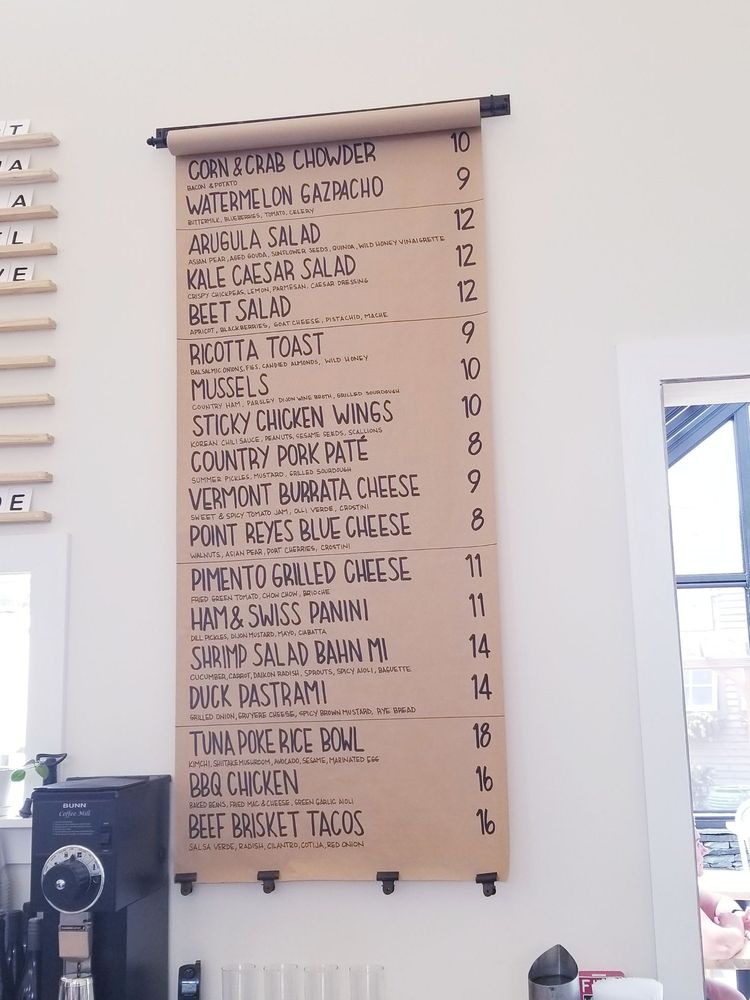 CORN & CRAB CHOWDER 10
BACON & POTATO
WATERMELON GAZPACHO 9
BUTTERMILK, BLUEBERRIES, TOMATO, CELERY
ARUGULA SALAD 12
ASIAN PEAR, AGED GOUDA, SUNFLOWER SEEDS, QUINOA, WILD HONEY VINAIGRETTE
KALE CAESAR SALAD 12
CRISPY CHICKPEAS, LEMON, PARMESAN, CAESAR DRESSING
BEET SALAD 12
APRICOT, BLACKBERRIES, GOAT CHEESE, PISTACHIO, MACHE
RICOTTA TOAST 9
BALSALMIC ONIONS, FIGS, CANDIED ALMONDS, WILD HONEY
MUSSELS 10
COUNTRY HAM, PARSLEY DIJON WINE BROTH, GRILLED SOURDOUGH
STICKY CHICKEN WINGS 10
KOREAN CHILI SAUCE, PEANUTS, SESAME SEEDS, SCALLIONS
COUNTRY PORK PATÉ 8
SUMMER PICKLES, MUSTARD, GRILLED SOURDOUGH
VERMONT BURRATA CHEESE 9
SWEET & SPICY TOMATO JAM, OLLI VERDE, CROSTINI
POINT REYES BLUE CHEESE 8
WALNUTS, ASIAN PEAR, PORT CHERRIES, CROSTINI
PIMENTO GRILLED CHEESE 11
FRIED GREEN TOMATO, CHOW CHOW, BRIOCHE
HAM & SWISS PANINI 11
DILL PICKLES, DIJON MUSTARD, MAYO, CIABATTA
SHRIMP SALAD BAHN MI 14
CUCUMBER, CARROT, DAIKON RADISH, SPROUTS, SPICY AIOLI, BAGUETTE
DUCK PASTRAMI 14
GRILLED ONION, GRUYERE CHEESE, SPICY BROWN MUSTARD, RYE BREAD
TUNA POKE RICE BOWL 18
KIMCHI, SHIITAKE MUSHROOM, AVOCADO, SESAME, MARINATED EGG
BBQ CHICKEN 16
BAKED BEANS, FRIED MAC & CHEESE, GREEN GARLIC AIOLI
BEEF BRISKET TACOS 16
SALSA VERDE, RADISH, CILANTRO, COTIJA, RED ONION
T
A
A
L
VE
DE
BUNN
Coffee Mill